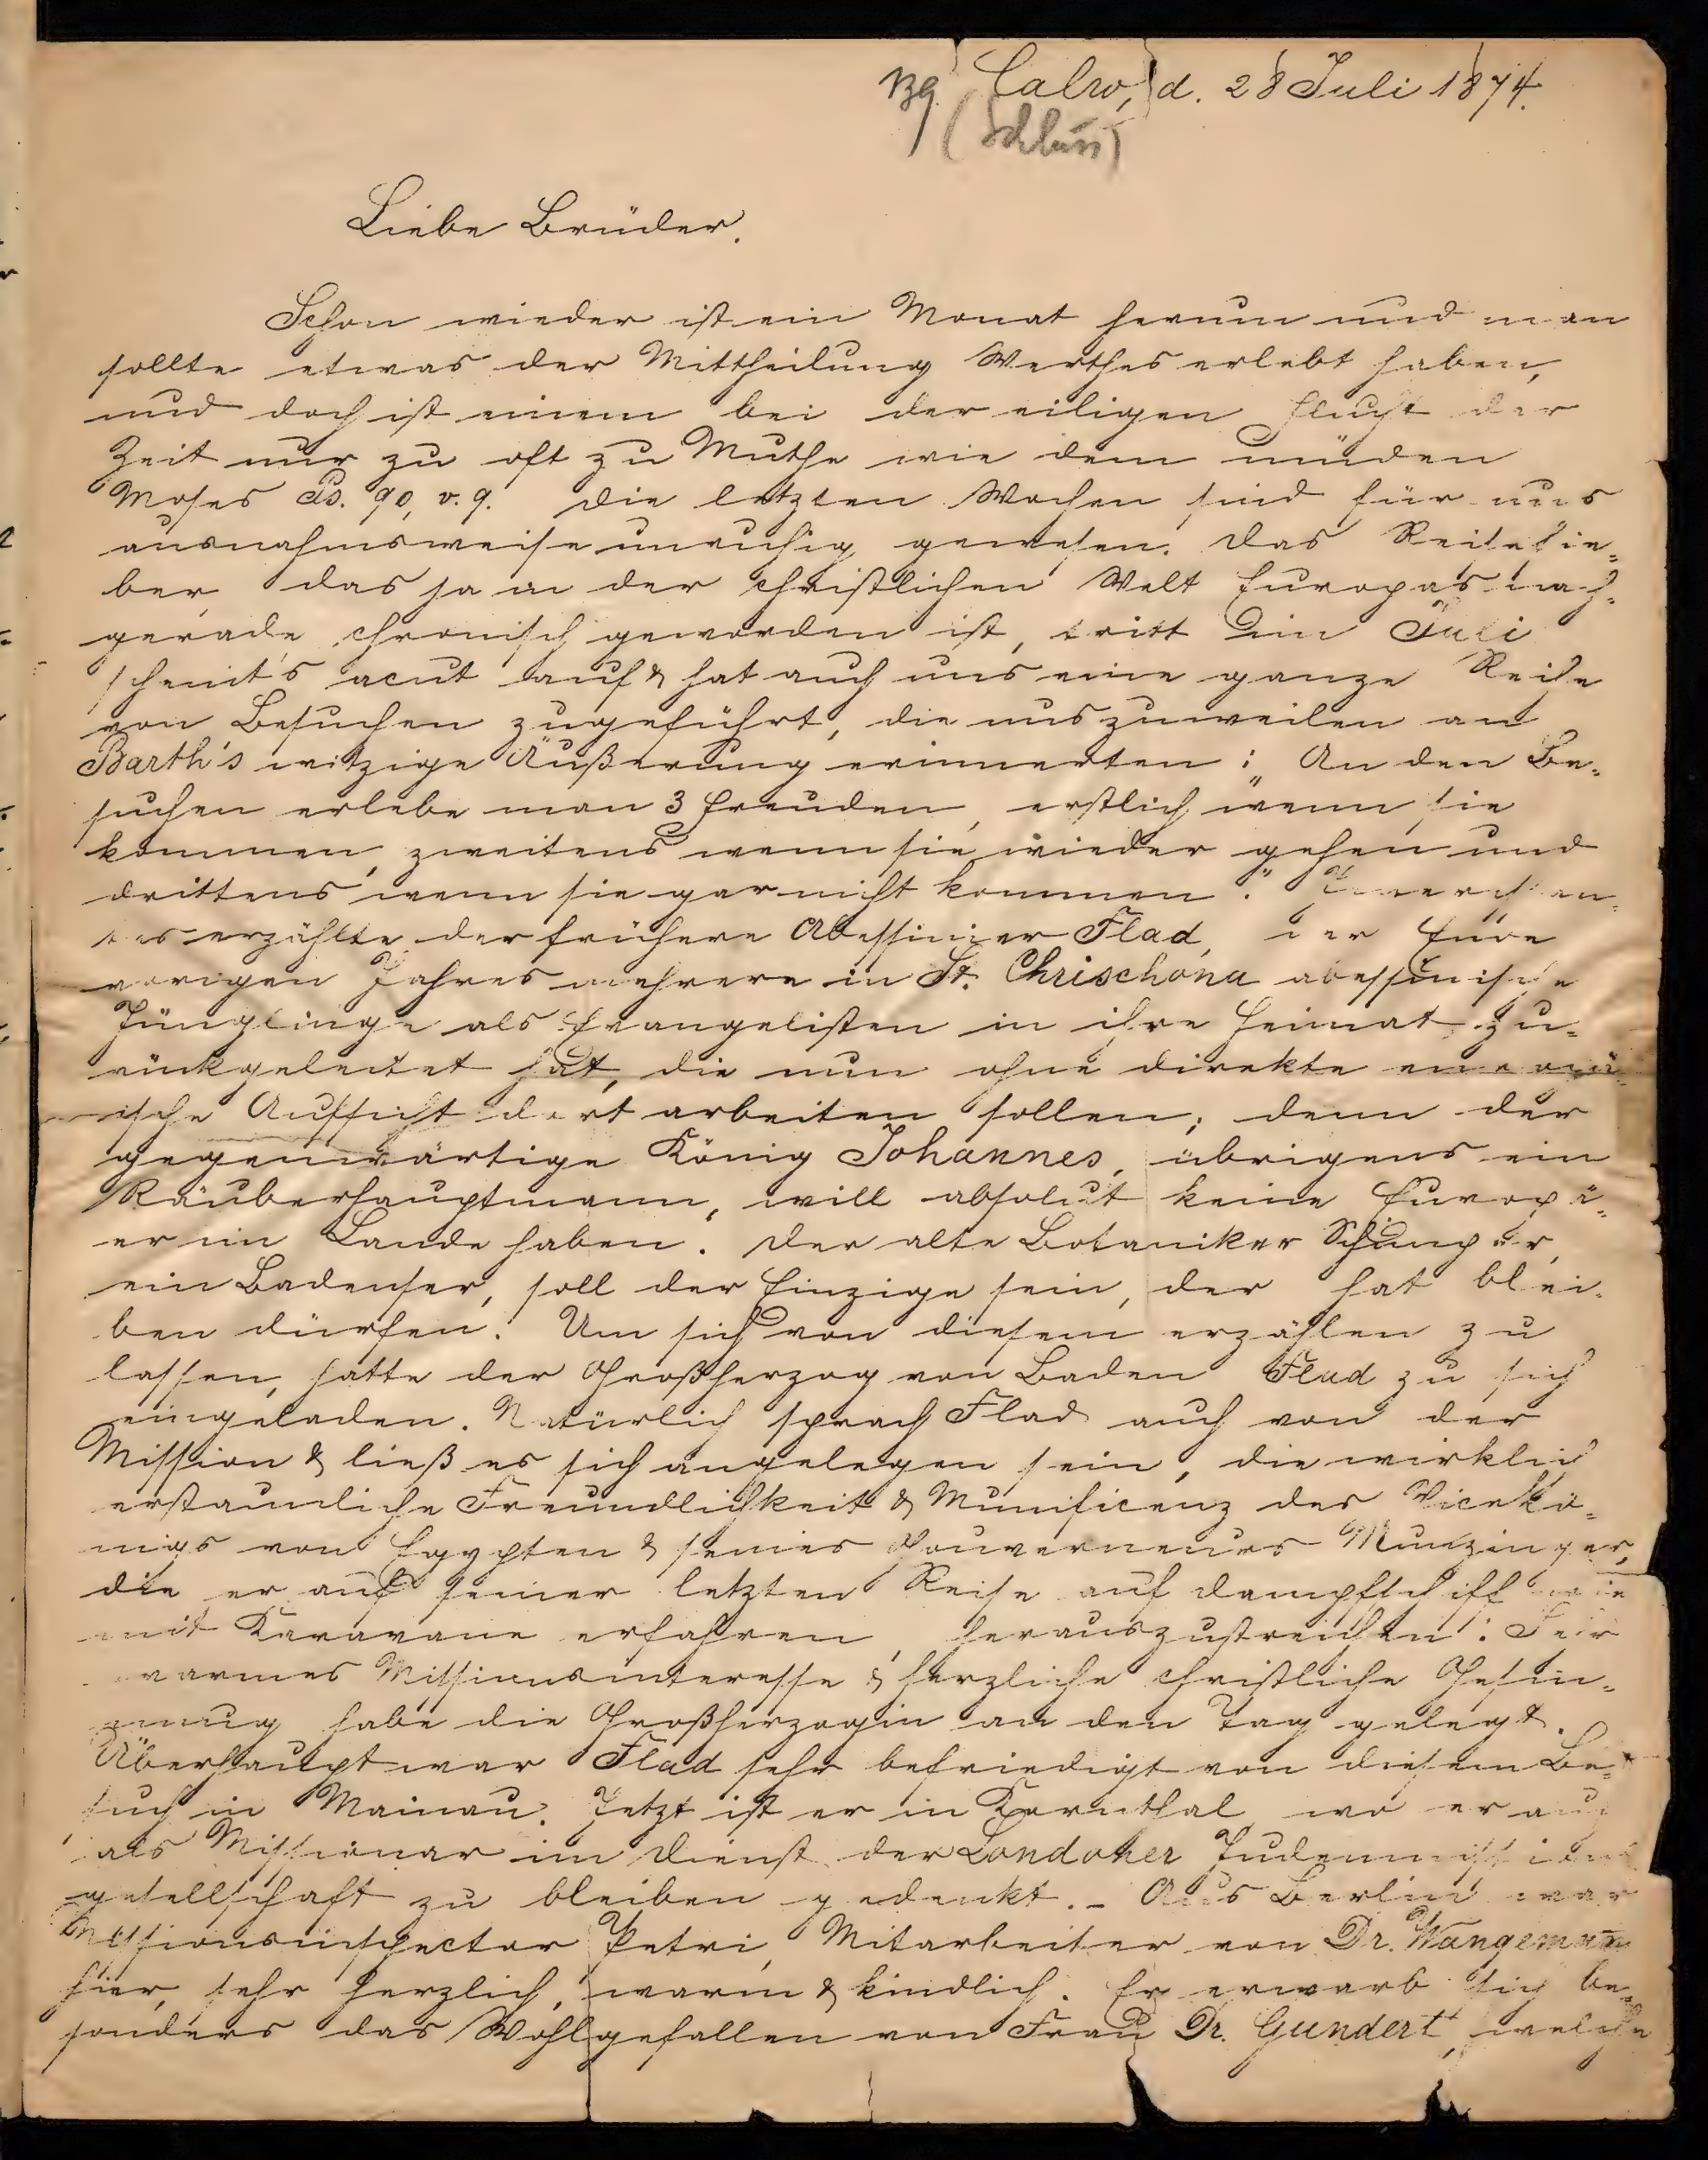 Calw, d. 28 Juli 1874.
Liebe Brüder.
Schon wieder ist ein Monat herum und man
sollte etwas der Mittheilung Werthes erlebt haben,
und doch ist einem bei der eiligen Flucht der
Zeit nur zu oft zu Muthe wie dem müden
Moses Ps. 90, v. 9. Die letzten Wochen sind für uns
ausnahmsweise unruhig gewesen. Das Reisefie-
ber, das ja in der christlichen Welt Europas nach-
gerade chronisch geworden ist, tritt im Juli
acut auf & hat auch uns eine ganze Reihe
von Besuchen zugeführt, die uns zuweilen an
Barth's witzige Äußerung erinnerten: „An den Be-
suchen erlebe man 3 Freuden, erstlich wenn sie
kommen, zweitens wenn sie wieder gehen und
drittens wenn sie gar nicht kommen."
erzählte der frühere Abessinier Flad, der Ende
vorigen Jahres mehrere in St. Chrischona abessinische
Jünglinge als Evangelisten in ihre Heimat zu-
rückgeleitet hat, die nun ohne direkte europä-
ische Aufsicht dort arbeiten sollen; denn der
gegenwärtige König Johannes, übrigens ein
Räuberhauptmann, will absolut keine Europä-
er im Lande haben. Der alte Botaniker Schimper,
ein Badenser, soll der Einzige sein, der hat blei-
ben dürfen. Um sich von diesem erzählen zu
lassen, hatte der Großherzog von Baden Flad zu sich
eingeladen. Natürlich sprach Flad auch von der
Mission & ließ es sich angelegen sein, die wirklich
erstaunliche Freundlichkeit & Munificenz des Vicekö-
nigs von Egypten & seines Gouverneurs Munzinger,
die er auf seiner letzten Reise auf Dampfschiff wie
mit Karavane erfahren, herauszustreichen.
warmes Missionsinteresse & herzliche christliche Gesin-
nung habe die Großherzogin an den Tag gelegt.
Überhaupt war Flad sehr befriedigt von diesem Be-
such in Mainau. Jetzt ist er in Kornthal, wo er auch
als Missionar im Dienst der Londoner Judenmissions
gesellschaft zu bleiben gedenkt. – Aus Berlin war
Missionsinspector Petri, Mitarbeiter von Dr. Wangemann
hier, sehr herzlich, warm & kindlich. Er erwarb sich be-
sonders das Wohlgefallen von Frau Dr. Gundert, welche